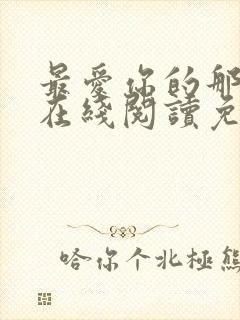 最愛你的那
在綫閱讀免
哈你个北極熊